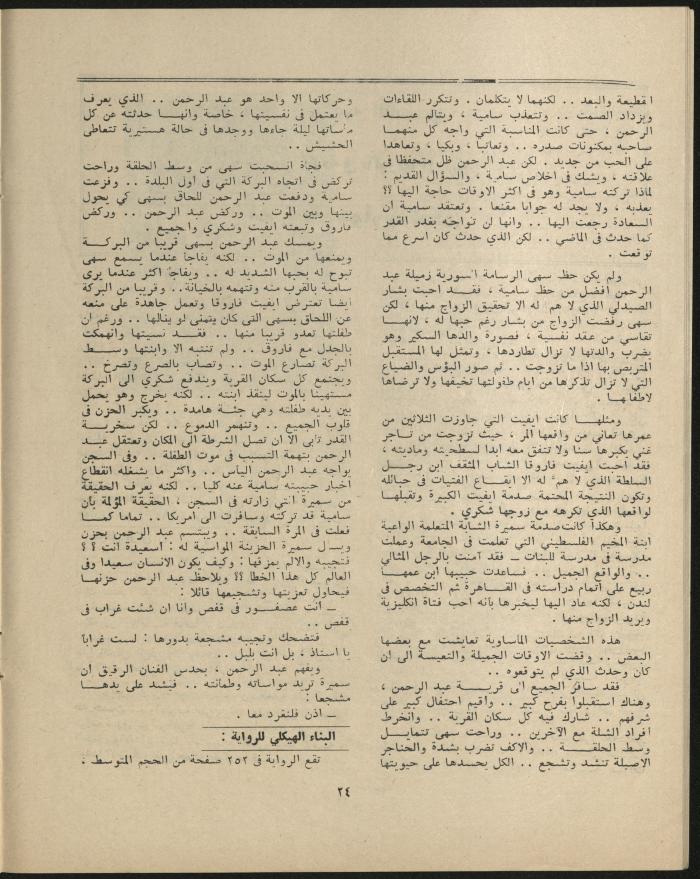 القطيعة والبعد .. لكنهما لا يتكلمان . وتتكرر اللقاءات
ويزداد الصمت .. وتتعذب سامية ، ويتألم عبد
الرحمن ، حتى كانت المناسبة التي واجه كل منهما
صاحبه بمكنونات صدره .. وتعاتبا ، وبكيا ، وتعاهدا
على الحب من جديد . لكن عبد الرحمن ظل متحفظا في
علاقته ، ويشك في اخلاص سامية ، والسؤال القديم :
لماذا تركته سامية وهو في اكثر الاوقات حاجة اليها ؟؟
يعذبه ، ولا يجد له جوابا مقنعا . وتعتقد سامية ان
السعادة رجعت اليها .. وانها لن تواجه بغدر القدر
كما حدث في الماضي .. لكن الذي حدث كان اسرع مما
توقعت .
ولم يكن حظ سهى الرسامة السورية زميلة عبد
الرحمن افضل من حظ سامية ، فقد احبت بشار
الصيدلي الذي لا هم له الا تحقيق الزواج منها ، لكن
سهى رفضت الزواج من بشار رغم حبها له ، لانها
تقاسي من عقد نفسية ، فصورة والدها السكير وهو
يضرب والدتها لا تزال تطاردها ، وتمثل لها المستقبل
المتربص بها اذا ما تزوجت .. ثم صور البؤس والضياع
التي لا تزال تذكرها من ايام طفولتها تخيفها ولا ترضاها
لاطفالها .
ومثلها كانت ايفيت التي جاوزت الثلاثين من
عمرها تعاني من واقعها المر ، حيث تزوجت من تاجر
غني يكبرها سنا ولا تتفق معه ابدا لسطحيته وماديته ،
فقد احبت ايفيت فاروقا الشاب المثقف ابن رجل
السلطة الذي لا هم له الا ايقاع الفتيات في حبائله
وتكون النتيجة المحتمة صدمة ايفيت الكبيرة وتقبلها
لواقعها الذي تكرهه مع زوجها شكري .
وهكذا كانت صدمة سميرة الشابة المتعلمة الواعية
ابنة المخيم الفلسطيني التي تعلمت في الجامعة وعملت
مدرسة في مدرسة للبنات ــ فقد آمنت بالرجل المثالي
.. والواقع الجميل .. فساعدت حبيبها ابن عمها
ربيع على اتمام دراسته في القاهرة ثم التخصص في
لندن ، لكنه عاد اليها ليخبرها بأنه احب فتاة انكليزية
ويريد الزواج منها .
هذه الشخصيات الماساوية تعايشت مع بعضها
البعض .. وقضت الاوقات الجميلة والتعيسة الى ان
كان وحدث الذي لم يتوقعوه ..
فقد سافر الجميع الى قرية عبد الرحمن ،
وهناك استقبلوا بفرح كبير .. واقيم احتفال كبير على
شرفهم .. شارك فيه كل سكان القرية .. وانخرط
افراد الشلة مع الآخرين .. وراحت سهى تتمايل
وسط الحلقة .. والاكف تضرب بشدة والحناجر
الاصيلة تنشد وتشجع .. الكل يحسدها على حيويتها
وحركاتها الا واحد هو عبد الرحمن .. الذي يعرف
ما يعتمل في نفسيتها ، خاصة وانها حدثته عن كل
مأساتها ليلة جاءها ووجدها في حالة هستيرية تتعاطى
الحشيش ..
فجأة انسحبت سهى من وسط الحلقة وراحت
تركض في اتجاه البركة التي في اول البلدة .. وفزعت
سامية ودفعت عبد الرحمن للحاق بسهى كي يحول
بينها وبين الموت .. وركض عبد الرحمن .. وركض
فاروق وتبعته ايفيت وشكري والجميع .
ويمسك عبد الرحمن بسهى قريبا من البركة
ويمنعها من الموت .. لكنه يفاجأ عندما يسمع سهى
تبوح له بحبها الشديد له .. ويفاجأ اكثر عندما يرى
سامية بالقرب منه وتتهمه بالخيانة .. وقريبا من البركة
ايضا تعترض ايفيت فاروقا وتعمل جاهدة على منعه
عن اللحاق بسهى التي كان يتمنى لو ينالها .. ورغم ان
طفلتها تعدو قريبا منها .. فقد نسيتها وانهمكت
بالجدل مع فاروق .. ولم تنتبه الا وابنتها وسط
البركة تصارع الموت .. وتصاب بالصرع وتصرخ ..
ويجتمع كل سكان القرية ويندفع شكري الى البركة
مستهينا بالموت لينقذ ابنته .. لكنه يخرج وهو يحمل
بين يديه طفلته وهي جثة هامدة .. ويكبر الحزن في
قلوب الجميع .. وتنهمر الدموع .. لكن سخرية
القدر تأبى الا ان تصل الشرطة الى المكان وتعتقل عبد
الرحمن بتهمة التسبب في موت الطفلة .. وفي السجن
يواجه عبد الرحمن اليأس .. واكثر ما يشغله انقطاع
اخبار حبيبته سامية عنه كليا .. لكنه يعرف الحقيقة
من سميرة التي زارته في السجن ، الحقيقة المؤلمة بأن
سامية قد تركته وسافرت الى امريكا .. تماما كما
فعلت في المرة السابقة .. ويبتسم عبد الرحمن بحزن
ويسأل سميرة الحزينة المواسية له : أسعيدة انت ؟ ؟
فتجيبه والالم يمزقها : وكيف يكون الانسان سعيدا وفي
العالم كل هذا الخطأ ؟؟ ويلاحظ عبد الرحمن حزنها
فيحاول تعزيتها وتشجيعها قائلا :
ــ انت عصفور في قفص وانا ان شئت غراب في
قفص ..
فتضحك وتجيبه مشجعة بدورها : لست غرابا
يا استاذ ، بل انت بلبل ..
ويفهم عبد الرحمن ، بحدس الفنان الرقيق ان
سميرة تريد مواساته وطمأنته .. فيشد على يدها
مشجعا :
ــ اذن فلنغرد معا .
البناء الهيكلي للرواية :
تقع الرواية في ٢٥٢ صفحة من الحجم المتوسط ،
٢٤